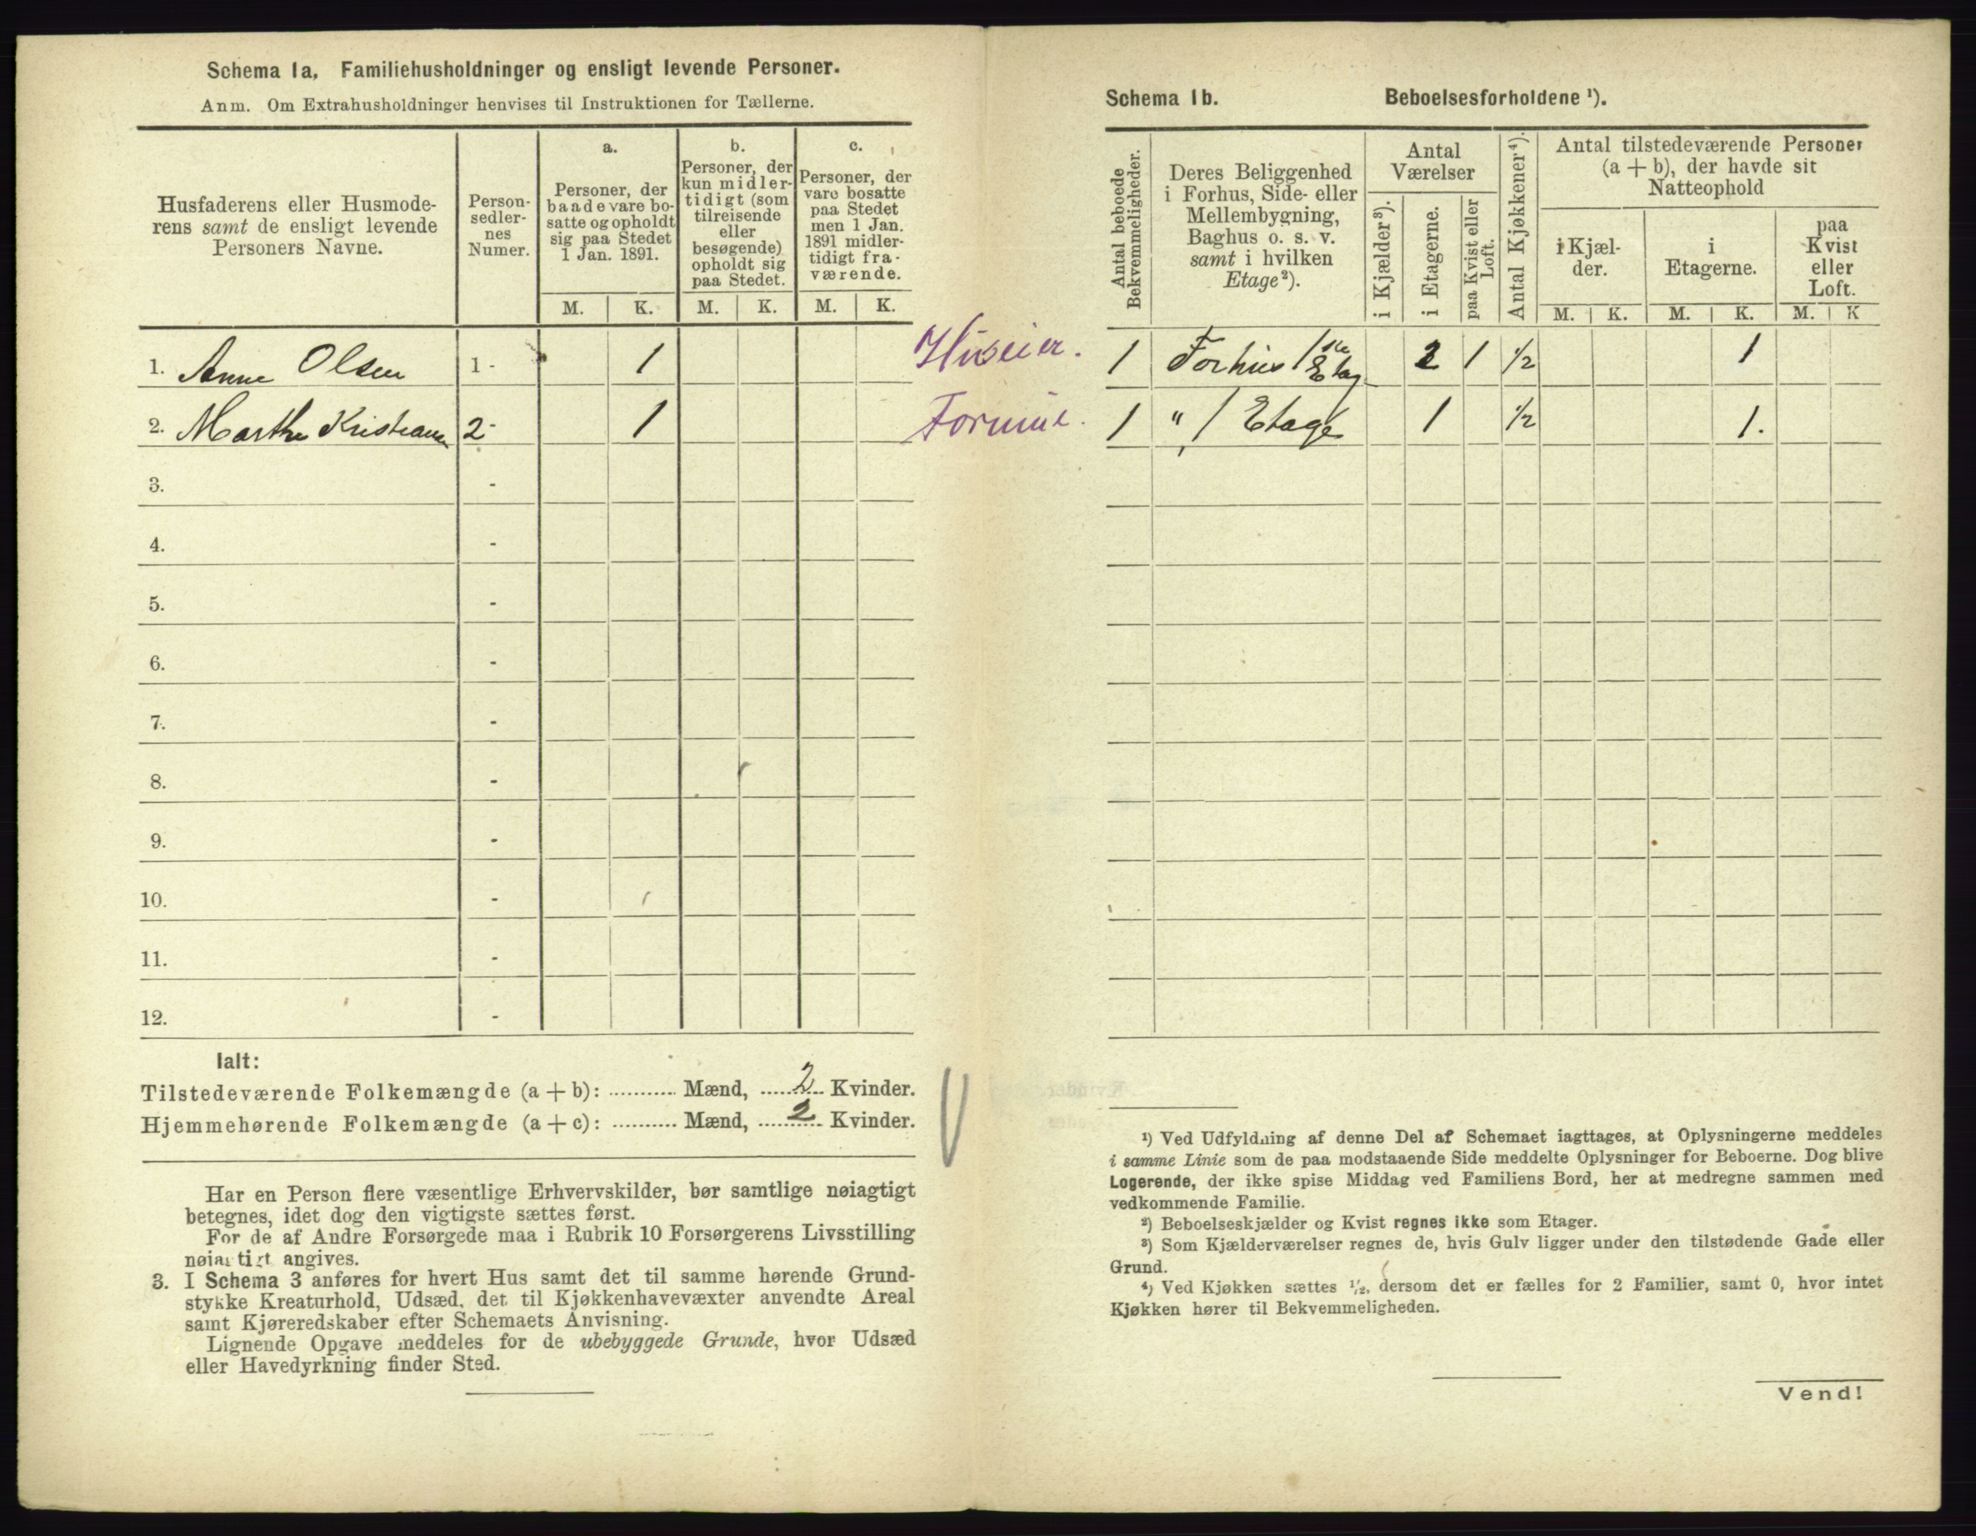 Schema 1a, Familiehusholdninger og ensligt levende Personer.
Anm. Om Extrahusholdninger henvises til Instruktionen for Tællerne.
Husfaderens eller Husmode-
rens samt de ensligt levende
Personers Navne.
Person-
sedler-
nes
Numer.
a.
Personer, der
baade vare bo-
satte og opholdt
sig paa Stedet
1 Jan. 1891.
b.
Personer, der
kun midler-
tidigt (som
tilreisende
eller
besøgende)
opholdt sig
paa Stedet.
c.
Personer, der
vare bosatte
paa Stedet
men 1 Jan.
1891 midler-
tidigt fra-
værende.
M. K. M. K. M. K.
1. Anne Olsen 1 - 1 Huseier.
2. Marthe Kristiansen 2 - 1
3. -
4. -
5. -
6. -
7. -
8. -
9. -
10. -
11. -
12. -
Ialt:
Tilstedeværende Folkemængde (a + b): .......... Mænd, ...... 2 .. Kvinder.
Hjemmehørende Folkemængde (a + c): .......... Mænd, ...... 2 .. Kvinder.
Har en Person flere væsentlige Erhvervskilder, bør samtlige nøiagtigt
betegnes, idet dog den vigtigste sættes først.
For de af Andre Forsørgede maa i Rubrik 10 Forsørgerens Livsstilling
nøiagtigt angives.
3. I Schema 3 anføres for hvert Hus samt det til samme hørende Grund-
stykke Kreaturhold, Udsæd, det til Kjøkkenhavevæxter anvendte Areal
samt Kjøreredskaber efter Schemaets Anvisning.
Lignende Opgave meddeles for de ubebyggede Grunde, hvor Udsæd
eller Havedyrkning finder Sted.
Schema 1b. Beboelsesforholdene ¹).
Antal beboede
Bekvemmeligheder.
Deres Beliggenhed
i Forhus, Side- eller
Mellembygning,
Baghus o. s. v.
samt i hvilken
Etage²).
Antal
Værelser
i Kjælder³).
i Etagerne.
paa Kvist eller
Loft.
Antal Kjøkkener⁴).
Antal tilstedeværende Personer
(a + b), der havde sit
Natteophold
i Kjæl-
der.
i
Etagerne.
paa
Kvist
eller
Loft.
M. K. M. K. M. K
1 Forhus 1ste Etag 2 1 1/2 1
1 " 1 Etage 1 1/2 1.
¹) Ved Udfyldning af denne Del af Schemaet iagttages, at Oplysningerne meddeles
i samme Linie som de paa modstaaende Side meddelte Oplysninger for Beboerne. Dog blive
Logerende, der ikke spise Middag ved Familiens Bord, her at medregne sammen med
vedkommende Familie.
²) Beboelseskjælder og Kvist regnes ikke som Etager.
³) Som Kjælderværelser regnes de, hvis Gulv ligger under den tilstødende Gade eller
Grund.
⁴) Ved Kjøkken sættes ¹/₂, dersom det er fælles for 2 Familier, samt 0, hvor intet
Kjøkken hører til Bekvemmeligheden.
Vend!